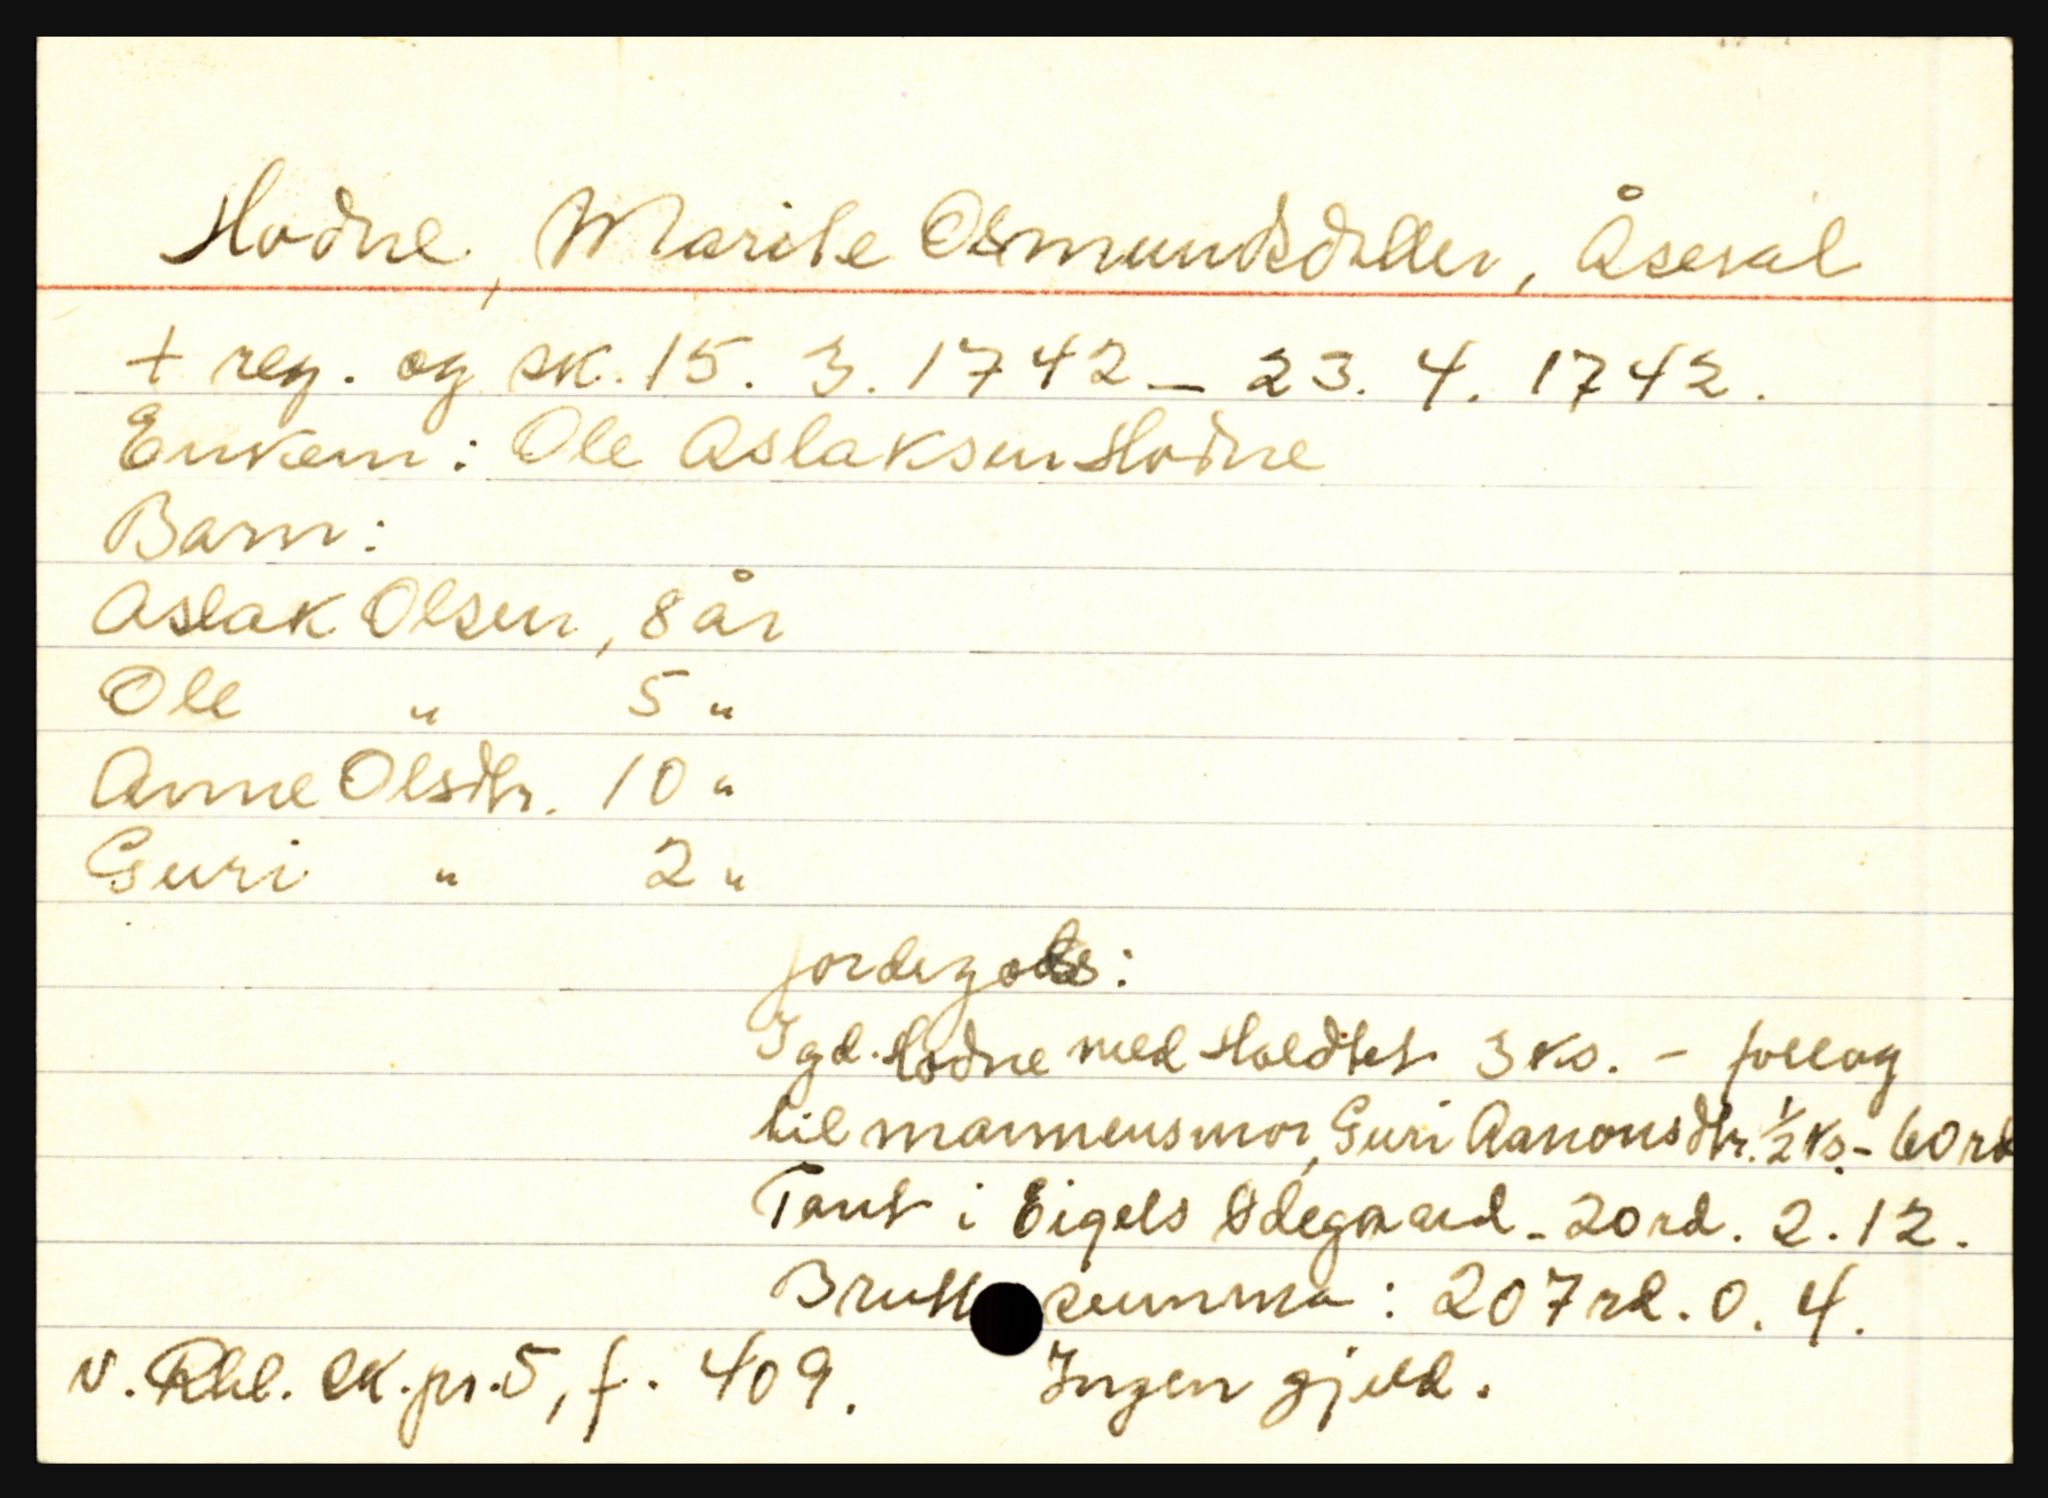 Hodne, Marite Osmundsdatter, Åseral
+ reg. og sk. 15. 3. 1742 – 23. 4. 1742.
Enkem: Ole Aslaksen Hodne
Barn:
Aslak Olsen, 8 år
Ole " 5 "
Anne Olsdtr. 10 "
Guri " 2 "
Jordegods:
I gd. Hodne med Holdtet 3 ks. – follog
til mannens mor, Guri Aanonsdtr. ½ ks. – 60 rd
Pant i Eigels Ødegaard – 20 rd. 2. 12.
Brutto summa: 207 rd. 0. 4.
v. Rbl. sk. pr. 5, f. 409. Ingen gjeld.